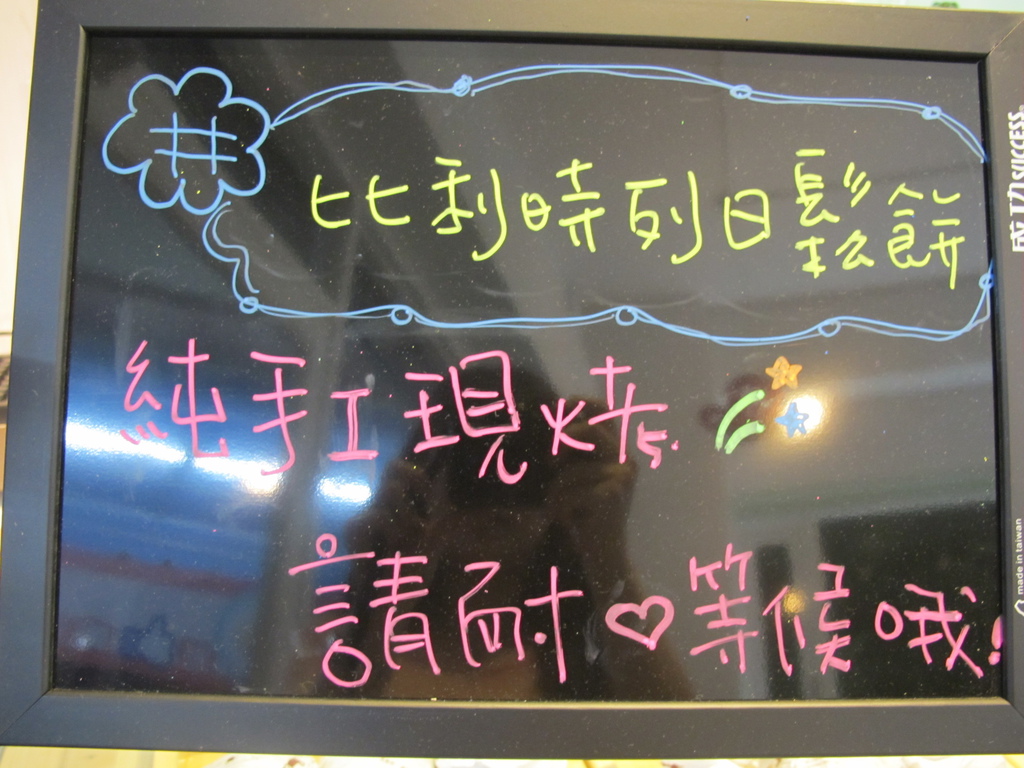 井
比利時列日鬆餅
純手工現烤
請耐♡等候哦!
成功SUCCESS
made in taiwan